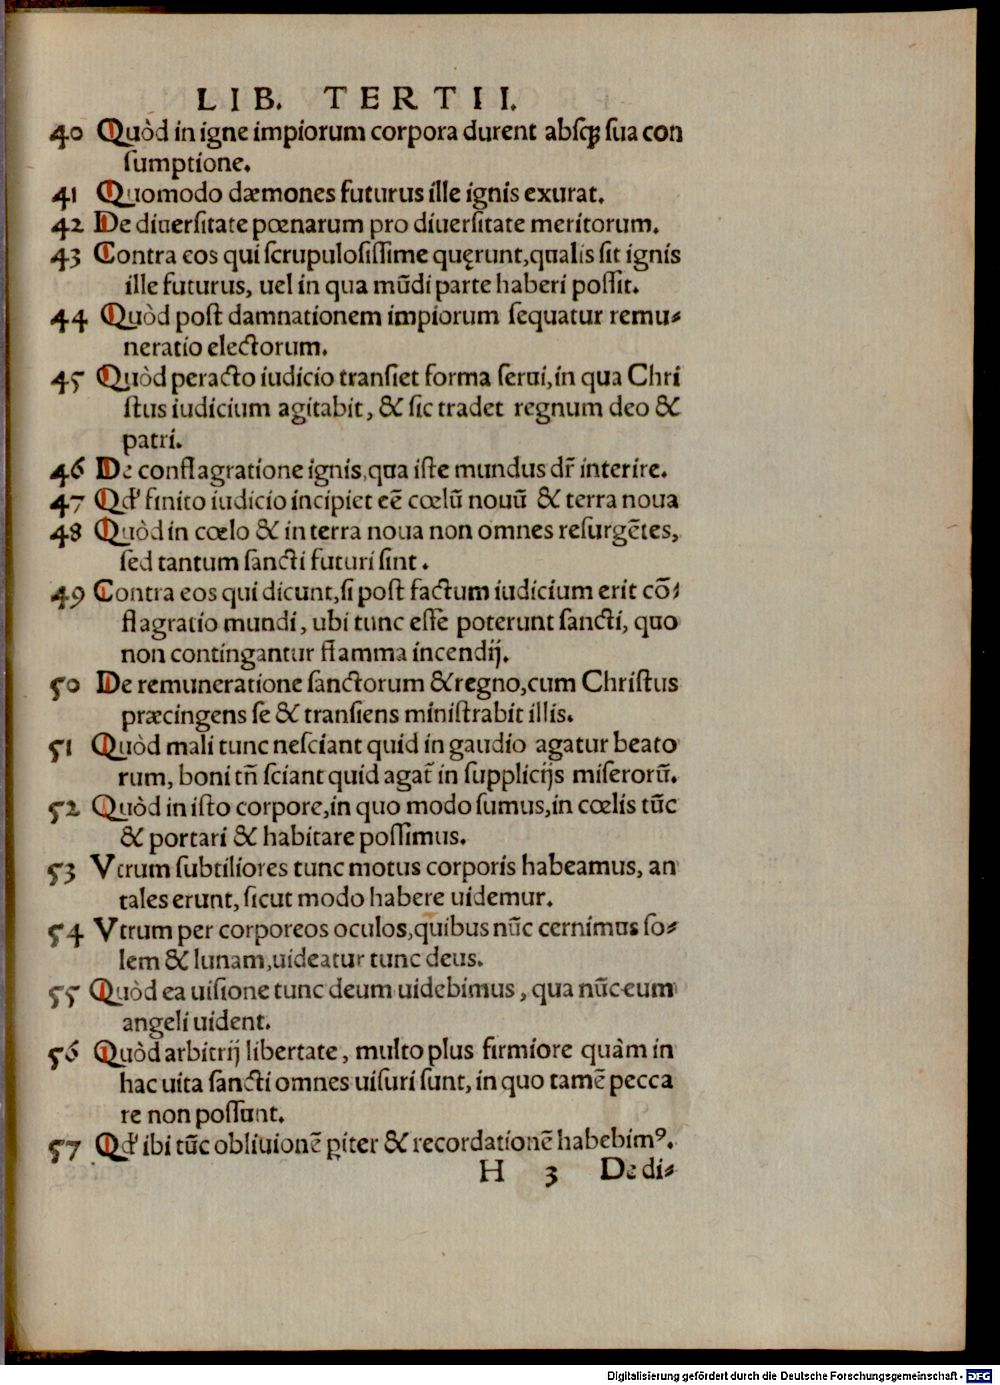 LIB. TERTII.
40 Quòd in igne impiorum corpora durent absq; sua con
sumptione.
41 Quomodo dæmones futurus ille ignis exurat.
42 De diuersitate pœnarum pro diuersitate meritorum.
43 Contra eos qui scrupulosissime quęrunt, qualis sit ignis
ille futurus, uel in qua mũdi parte haberi possit.
44 Quòd post damnationem impiorum sequatur remu⸗
neratio electorum.
45 Quòd peracto iudicio transiet forma serui, in qua Chri
stus iudicium agitabit, & sic tradet regnum deo &
patri.
46 De conflagratione ignis, qua iste mundus dr̃ interire.
47 Qd' finito iudicio incipiet eẽ cœlũ nouũ & terra noua
48 Quòd in cœlo & in terra noua non omnes resurgẽtes,
sed tantum sancti futuri sint.
49 Contra eos qui dicunt, si post factum iudicium erit cõ⸗
flagratio mundi, ubi tunc esse poterunt sancti, quo
non contingantur flamma incendij.
50 De remuneratione sanctorum & regno, cum Christus
præcingens se & transiens ministrabit illis.
51 Quòd mali tunc nesciant quid in gaudio agatur beato
rum, boni tñ sciant quid agat̃ in supplicijs miserorũ.
52 Quòd in isto corpore, in quo modo sumus, in cœlis tũc
& portari & habitare possimus.
53 Vtrum subtiliores tunc motus corporis habeamus, an
tales erunt, sicut modo habere uidemur.
54 Vtrum per corporeos oculos, quibus nũc cernimus so⸗
lem & lunam, uideatur tunc deus.
55 Quòd ea uisione tunc deum uidebimus, qua nũc eum
angeli uident.
56 Quòd arbitrij libertate, multo plus firmiore quàm in
hac uita sancti omnes uisuri sunt, in quo tamẽ pecca
re non possunt.
57 Qd' ibi tũc obliuionẽ ꝑiter & recordationẽ habebimꝰ.
H 3 De di⸗
Digitalisierung gefördert durch die Deutsche Forschungsgemeinschaft - DFG